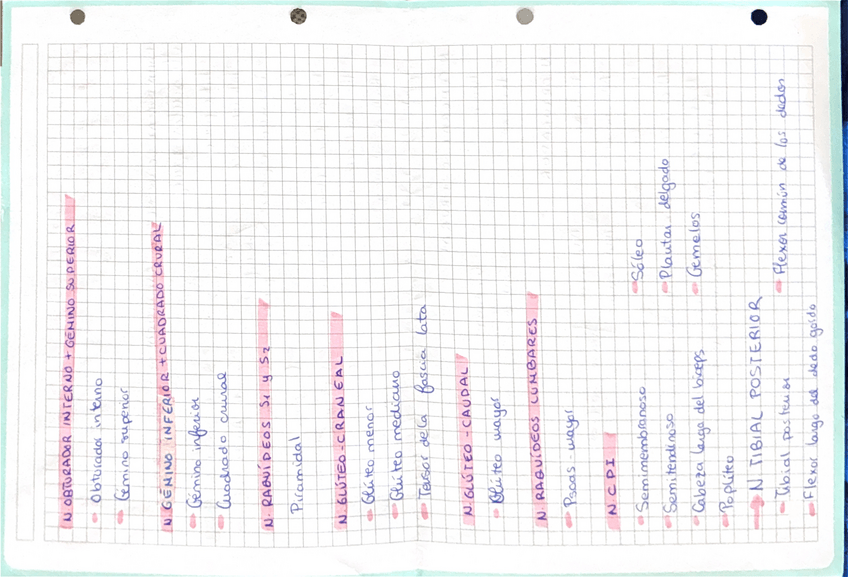 N. OBTURADOR INTERNO + GÉMINO SUPERIOR
Obturador interno
Gémino superior
N. GÉMINO INFERIOR + CUADRADO CRURAL
Gémino inferior
Cuadrado crural
N. RAQUÍDEOS S1 y S2
Piramidal
N. GLÚTEO - CRANEAL
Glúteo menor
Glúteo mediano
Tensor de la fascia lata
N. GLÚTEO - CAUDAL
Glúteo mayor
N. RAQUÍDEOS LUMBARES
Psoas - mayor
N CPI
Semimembranoso
Semitendinoso
Cabeza larga del bíceps
Poplíteo
Sóleo
Plantar delgado
Gemelos
N TIBIAL POSTERIOR
Tibial posterior
Flexor largo del dedo gordo
Flexor común de los dedos